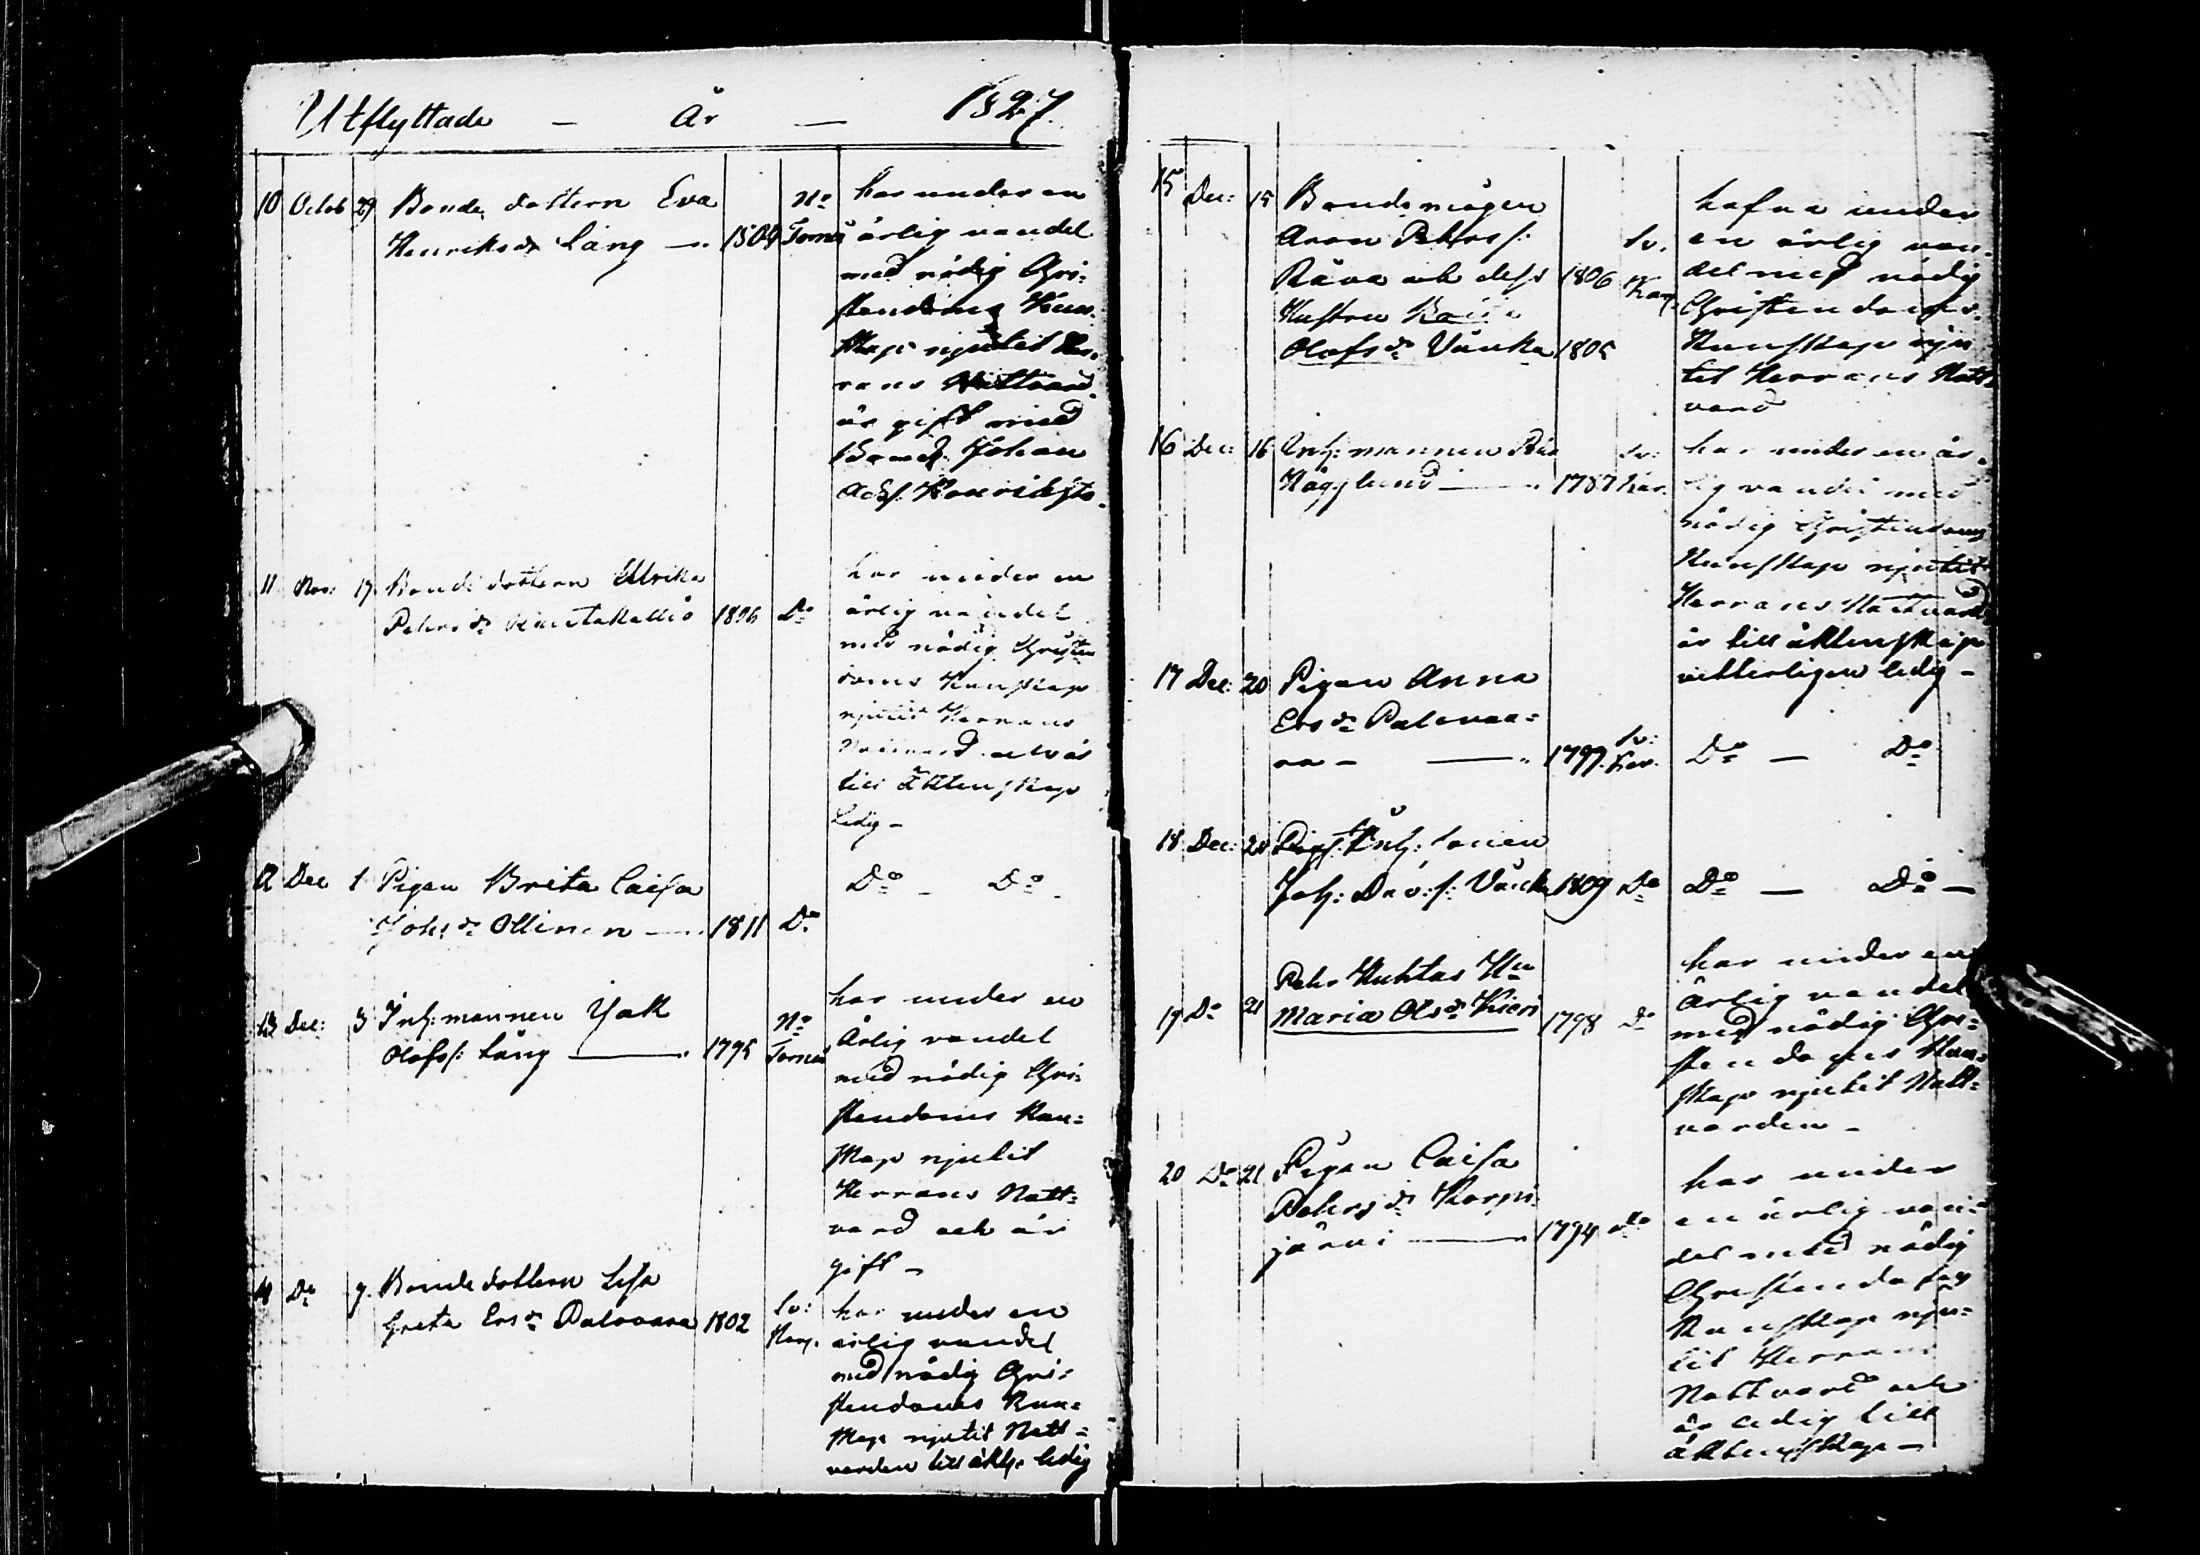 Utflyttade — År — 1827.
10 Octob 29 Bonde dottern Eva
Henriksdr Lång — 1804 No Torneå
har under en
ärlig vandel
med nödig Chri-
stendoms Kun-
skap njutit Her-
rans Nattvard
är gift med
Bond: Johan
11 Nov: 17 Bondedottern Ulrika
Pehrsdr 1806 Do
har under en
ärlig vandel
med nödig Christen
doms Kunskap
njutit Herrans
Nattvard och är
till Ächtenskap
Ledig –
12 Dec 1 Pigan Brita Caisa
Johsdr Ollinen — 1811 Do
Do – Do –
13 Dec: 3 Inh: mannen
Olofss: Lång — 1795 No Torneå
har under en
Ärlig vandel
med nödig Chri-
stendoms Kun-
skap njutit
Herrans Natt-
vard och är
gift –
14 Do 9. Bondedottern Lisa
Greta Ersdr Palovaara 1802 Sv: Karp.
har under en
ärlig vandel
med nödig Chri-
stendoms Kun-
skap njutit Natt-
varden till äkts. ledig
15 Dec: 15 Bonde mågen
Aron Pehrss:
och dess 1806 Sv. Karp.
Hustru
Olofsdr Vänka 1805
hafva under
en ärlig van-
del med nödig
Christendoms-
Kunskap nju
tit Herrans Natt-
vard
16 Dec: 16 Inh: mannen
Hägglund — 1787 Sv: Kar.
har under en är-
lig vandel med
nödig Christendoms
Kunskap njutit
Herrans Nattvard
är till äktenskap
vitterligen ledig –
17 Dec: 20 Pigan Anna
Ersdr Palovaa-
ra – — 1797. Sv: Kar.
Do — Do
18 Dec: 20 Inh: sonen
Joh: Dav: s: 1809 Do
Do — Do –
19 Do 21 Pehr Huhtas Hu
Maria Olsdr Kieri 1798 Do
har under en
Ärlig vandel
med nödig Chri-
stendoms Kun-
skap njutit Natt-
varden –
20 Do 21 Pigan Caisa
Pehrsdr Korpi-
järvi — 1794 Do
har under
en ärlig van-
del med nödig
Christendoms
Kunskap nju-
tit Herrans
Nattvard och
är ledig till
äktenskap –